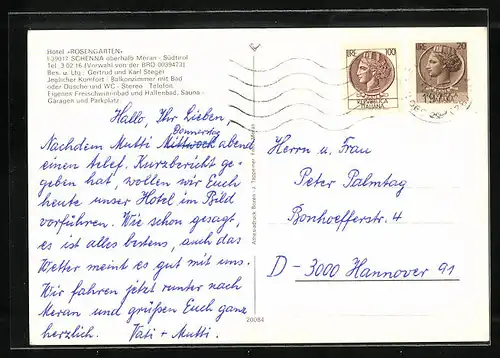 Hotel »ROSENGARTEN«
I-39017 SCHENNA oberhalb Meran · Südtirol
Tel. 3 02 16 (Vorwahl von der BRD 0039473)
Bes. u. Ltg.: Gertrud und Karl Steger
Jeglicher Komfort · Balkonzimmer mit Bad
oder Dusche und WC · Stereo · Telefon.
Eigenes Freischwimmbad und Hallenbad, Sauna -
Garagen und Parkplatz.
Hallo, Ihr Lieben,
Donnerstag
Nachdem Mutti Mittwoch abend
einen telef. Kurzbericht ge-
geben hat, wollen wir Euch
heute unser Hotel im Bild
vorführen. Wie schon gesagt,
es ist alles bestens, auch das
Wetter meint es gut mit uns.
Wir fahren jetzt runter nach
Meran und grüßen Euch ganz
herzlich. Vati + Mutti.
20084
LIRE 100
REPUBBLICA
ITALIANA
LIRE 20
Herrn u. Frau
Peter Palmtag
Bonhoefferstr. 4
D-3000 Hannover 91